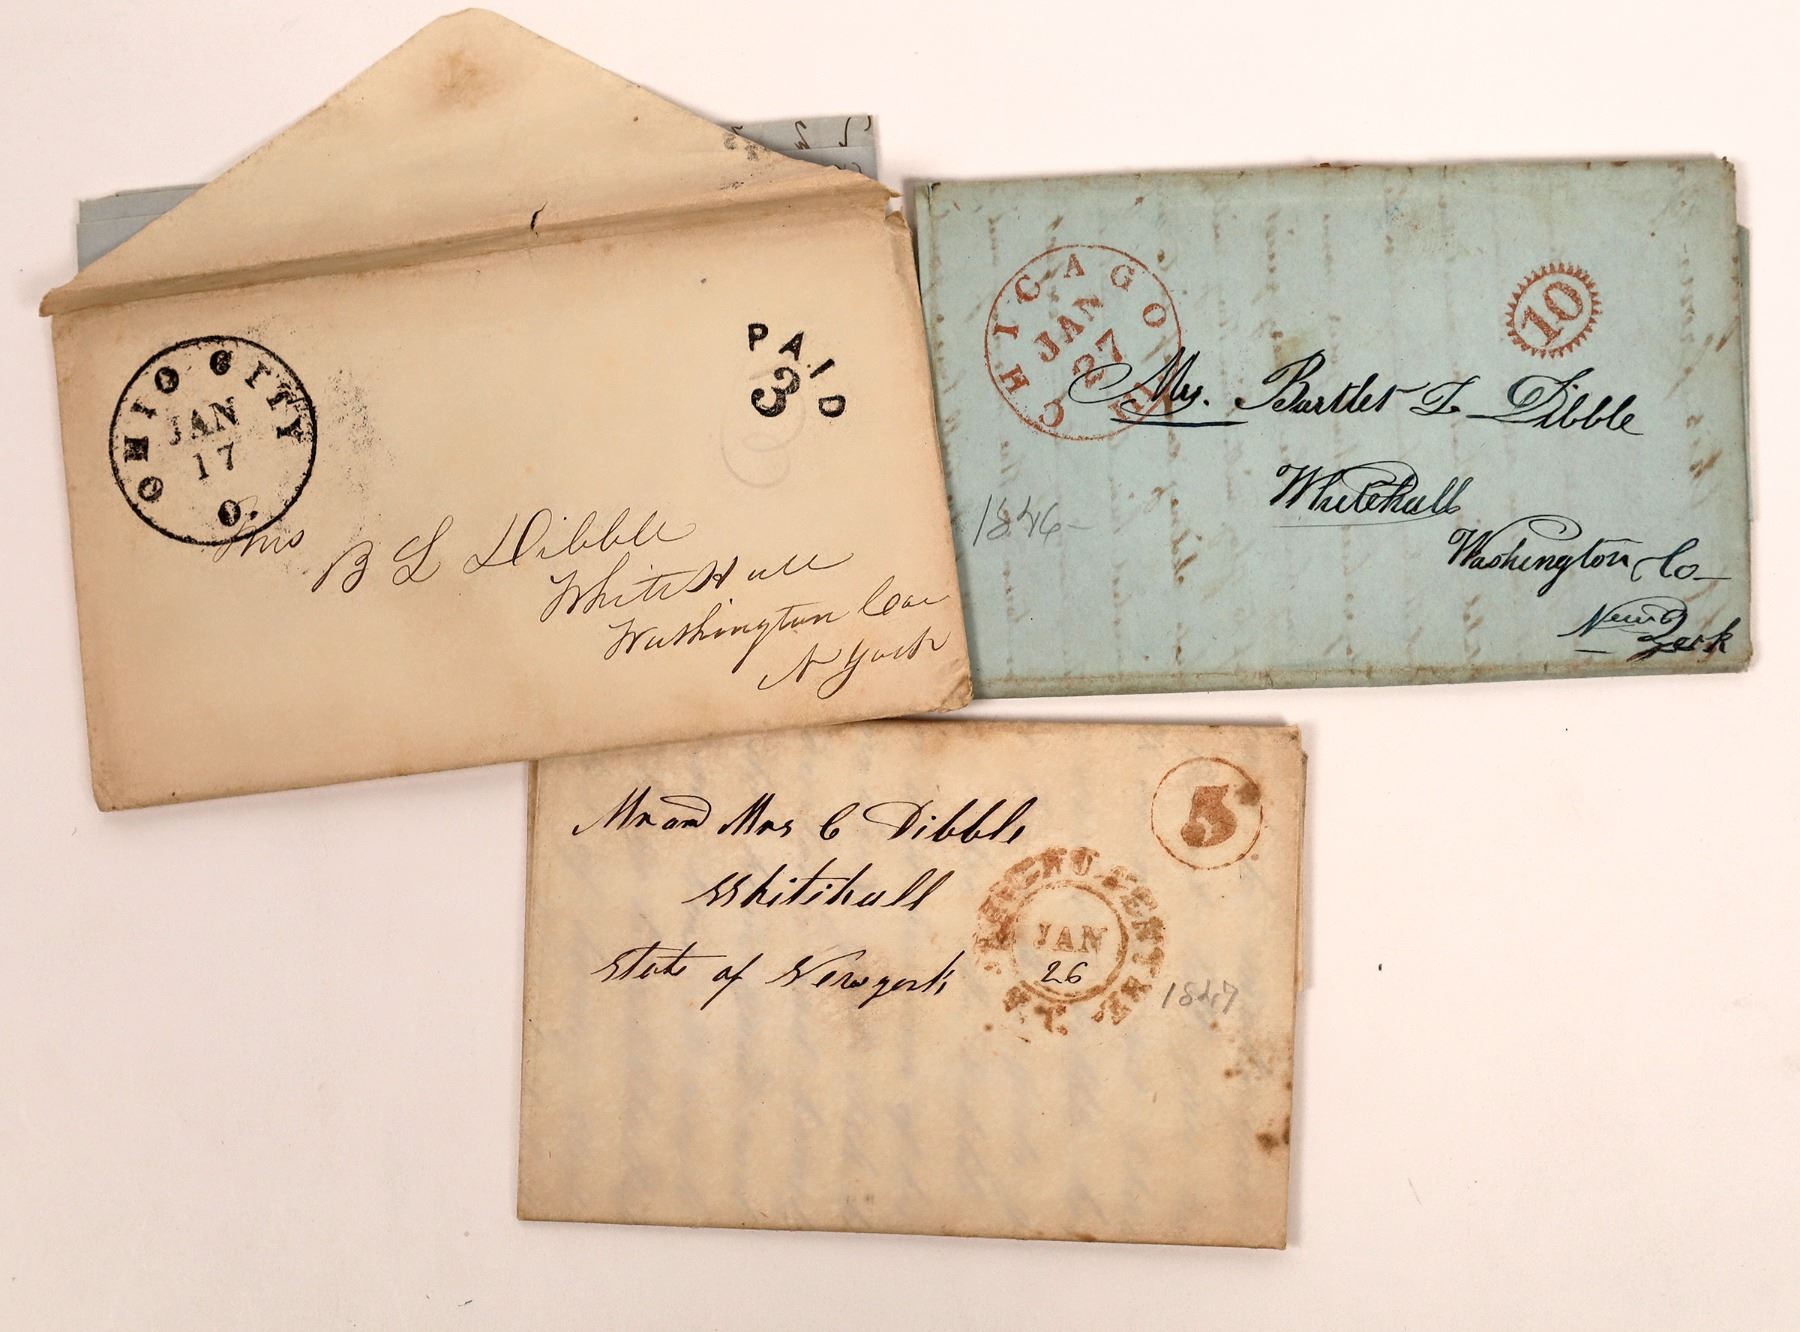 OHIO CITY
JAN
17
O.
PAID
3
Mrs
B L Dibble
White Hall
Washington Coun
N York
CHICAGO Ill
JAN
27
10
Mrs. Bartlet L Dibble
Whitehall
Washington Co
New York
1846
Mr and Mrs C Dibble
Whitehall
State of New york
5
CENTER
VT.
JAN
26
1847